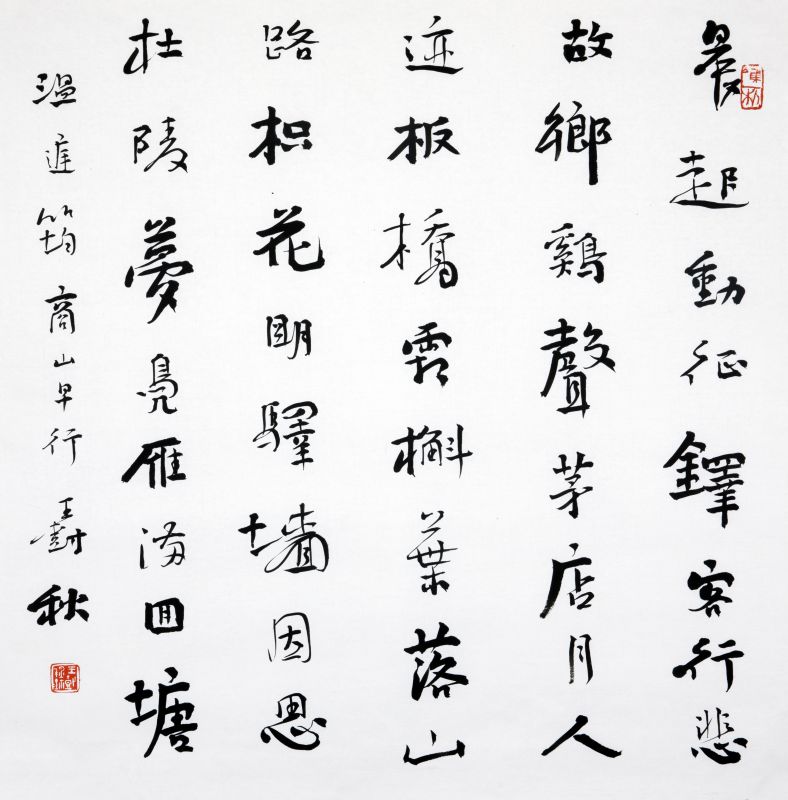 晨起動征鐸客行悲
故鄉鷄聲茅店月人
迹板橋霜槲葉落山
路枳花明驛墻因思
杜陵夢鳧雁滿回塘
温庭筠商山早行 王秋